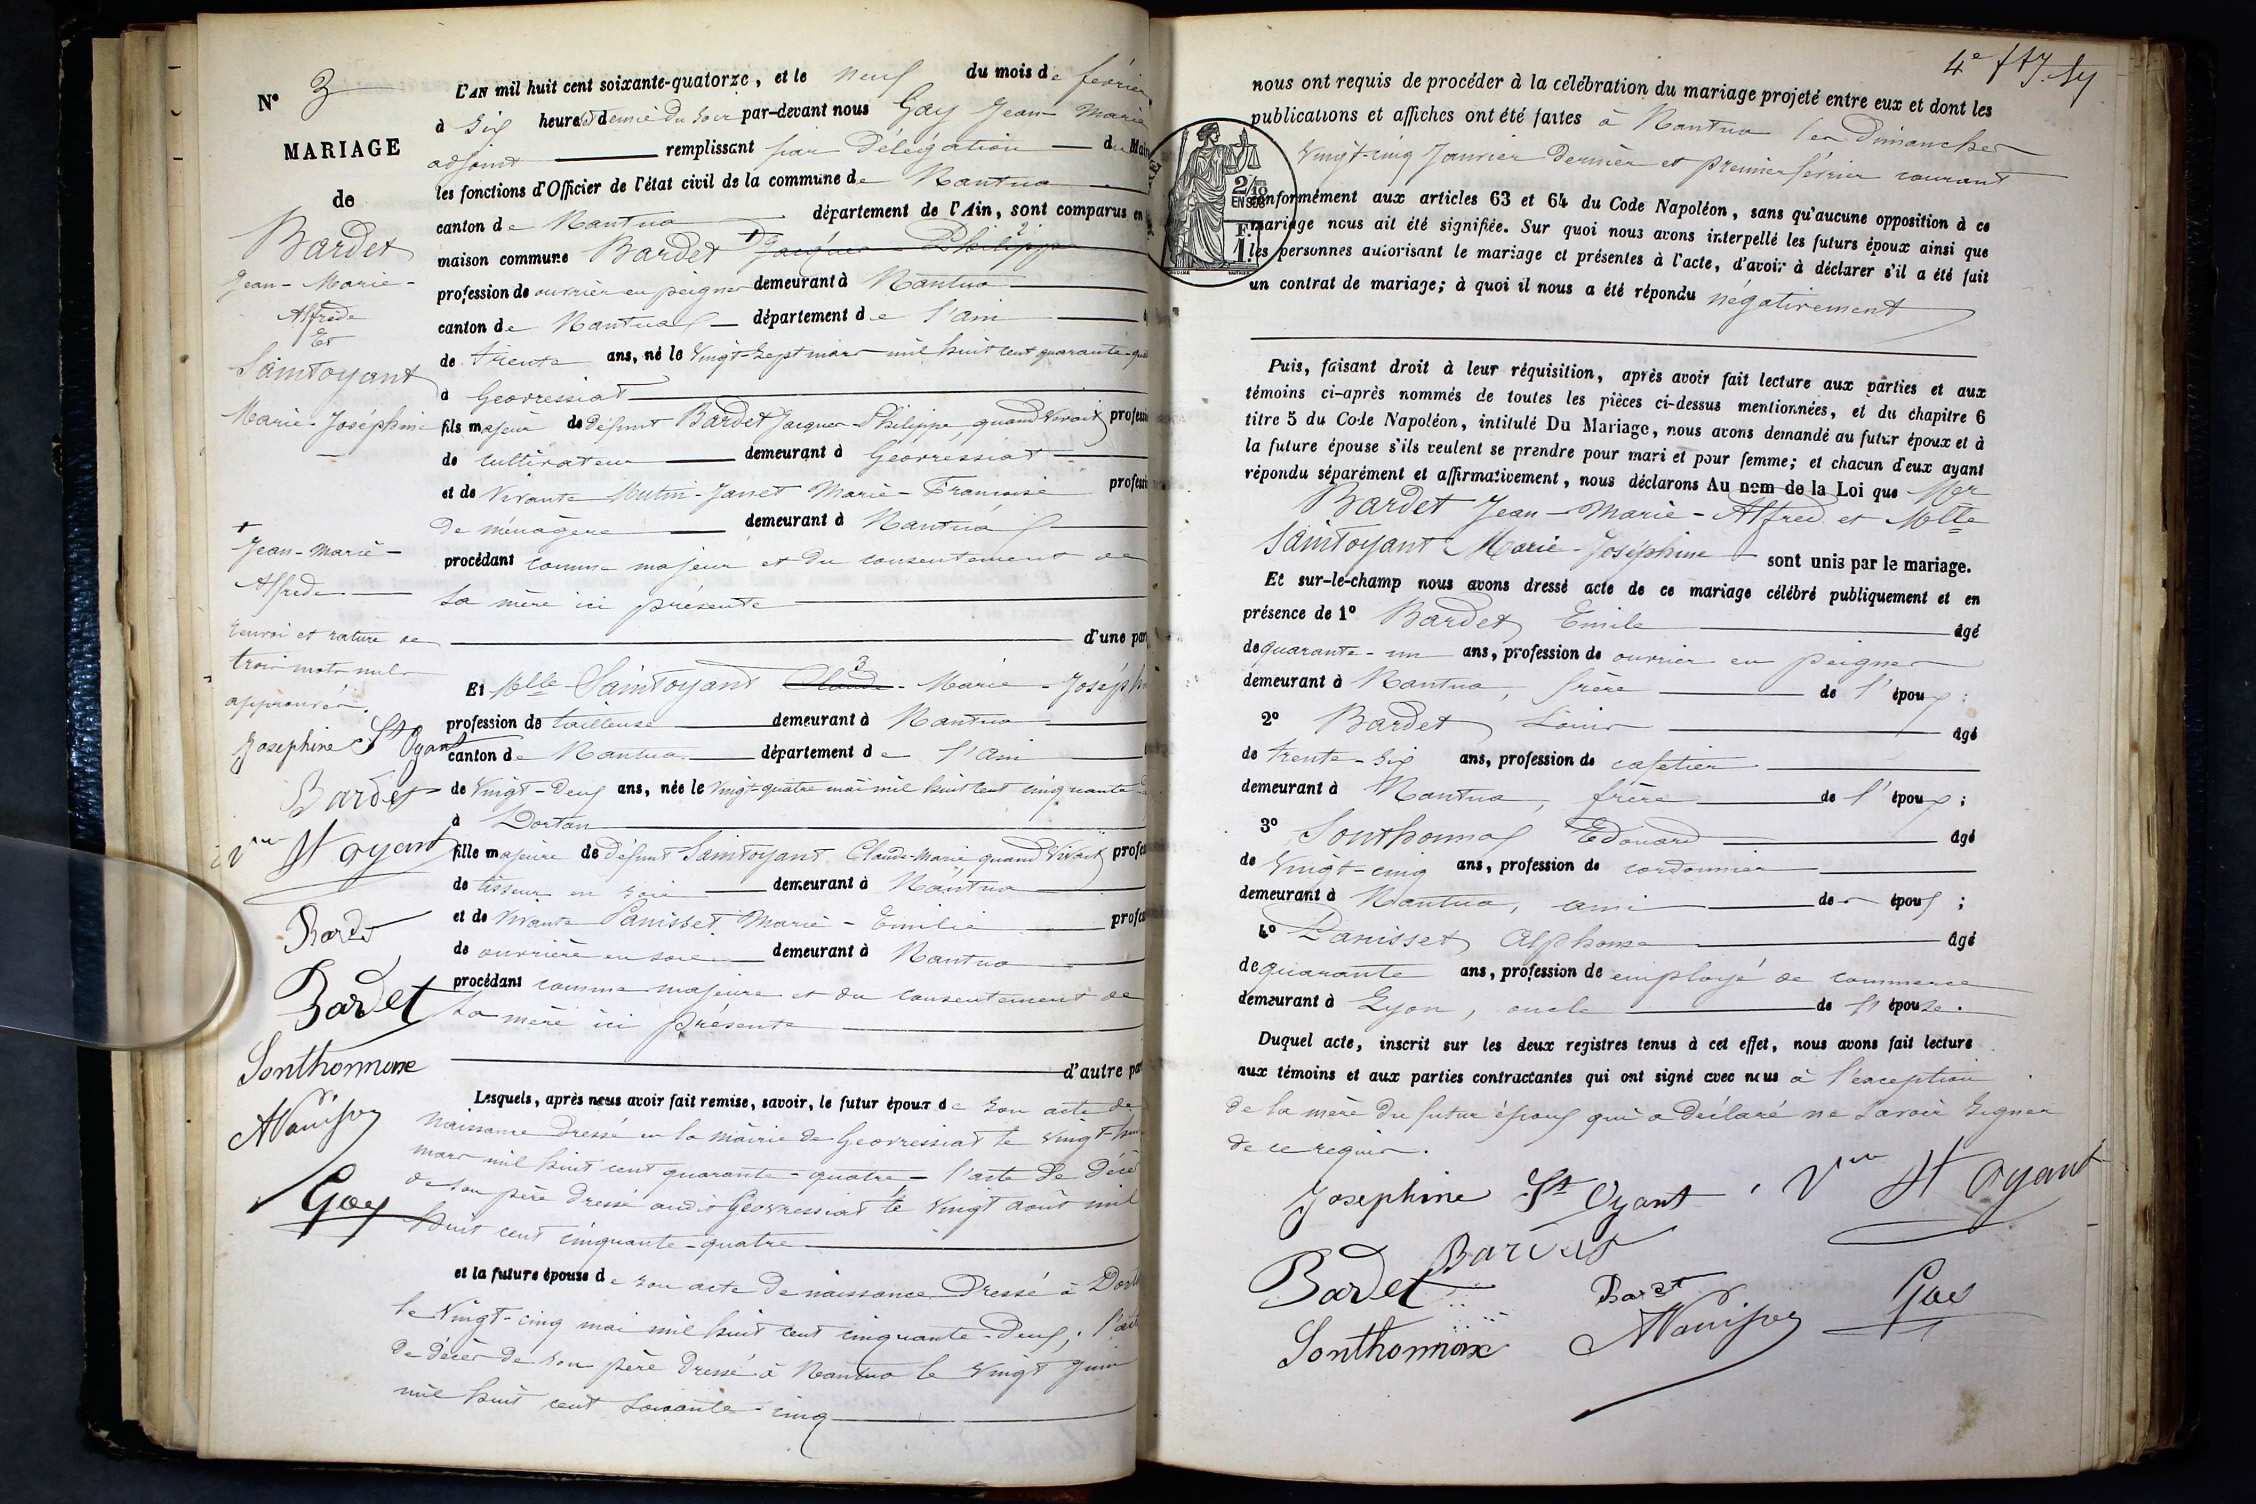 N° 3
MARIAGE
de
Bardet
Jean-Marie-
Alfrède
Et
Saintoyant
Marie-Joséphine
+
Jean-Marie-
Alfrède
renvoi et rature de
trois mots nuls
approuvés.
Josephine St Oyant
Bardet
Vve St Oyant
Bardet
Bardet
Sonthonnax
APanisset
Gay
L'AN mil huit cent soixante-quatorze, et le neuf du mois de février
à six heures et demie du soir par-devant nous Gay Jean Marie
adjoint remplissant par Délégation du Maire
les fonctions d'Officier de l'état civil de la commune de Nantua
canton de Nantua département de l'Ain, sont comparus en
maison commune Bardet + Jacques Philippe
profession de ouvrier en peignes demeurant à Nantua
canton de Nantua département de l'ain
de trente ans, né le Vingt-sept mars mil huit cent quarante-quatre
à Géovressiat
fils majeur de défunt Bardet Jacques-Philippe, quand vivait profession
de cultivateur demeurant à Géovressiat
et de vivante Mutin-Janet Marie-Francoise profession
de ménagère demeurant à Nantua
procédant comme majeur et du consentement de
sa mère ici présente
d'une part
Et Melle Saintoyant Claude-Marie-Joséphine
profession de tailleuse demeurant à Nantua
canton de Nantua département de l'ain
de Vingt-Deux ans, née le Vingt-quatre mai mil huit cent cinquante-
à Dortan
fille majeure de défunt Saintoyant Claude-Marie quand vivait profession
de tisseur en soie demeurant à Nantua
et de vivante Panisset Marie-Emilie profession
de ouvrière en soie demeurant à Nantua
procédant comme majeure et du consentement de
sa mère ici présente
d'autre part
Lesquels, après nous avoir fait remise, savoir, le futur époux de son acte de
naissance dressé en la mairie de Géovressiat le vingt-huit
mars mil huit cent quarante-quatre, l'acte de décès
de son père dressé audit Géovressiat le vingt août mil
huit cent cinquante-quatre
et la future épouse de son acte de naissance Dressé à Dortan
le Vingt-cinq mai mil huit cent cinquante-Deux; l'acte
de décès de son père Dressé à Nantua le vingt Juin
mil huit cent soixante-cinq
nous ont requis de procéder à la célébration du mariage projeté entre eux et dont les
publications et affiches ont été faites à Nantua les Dimanches
vingt-cinq Janvier dernier et premier février courant
conformément aux articles 63 et 64 du Code Napoléon, sans qu'aucune opposition à ce
mariage nous ait été signifiée. Sur quoi nous avons interpellé les futurs époux ainsi que
les personnes autorisant le mariage et présentes à l'acte, d'avoir à déclarer s'il a été fait
un contrat de mariage; à quoi il nous a été répondu négativement
Puis, faisant droit à leur réquisition, après avoir fait lecture aux parties et aux
témoins ci-après nommés de toutes les pièces ci-dessus mentionnées, et du chapitre 6
titre 5 du Code Napoléon, intitulé Du Mariage, nous avons demandé au futur époux et à
la future épouse s'ils veulent se prendre pour mari et pour femme; et chacun d'eux ayant
répondu séparément et affirmativement, nous déclarons Au nom de la Loi que Mer
Bardet Jean-Marie-Alfred et Melle
Saintoyant Marie-Joséphine sont unis par le mariage.
Et sur-le-champ nous avons dressé acte de ce mariage célébré publiquement et en
présence de 1° Bardet Emile âgé
de quarante-un ans, profession de ouvrier en peignes
demeurant à Nantua, frère de l'époux;
2° Bardet Louis âgé
de trente-six ans, profession de cafetier
demeurant à Nantua, frère de l'époux;
3° Sonthonnax Edouard âgé
de Vingt-cinq ans, profession de cordonnier
demeurant à Nantua, ami des époux;
4° Panisset Alphonse âgé
de quarante ans, profession de employé de commerce
demeurant à Lyon, oncle de l'épouse.
Duquel acte, inscrit sur les deux registres tenus à cet effet, nous avons fait lecture
aux témoins et aux parties contractantes qui ont signé avec nous à l'exception
de la mère du futur époux qui a déclaré ne savoir signer
de ce requis.
Josephine St Oyant Vve St Oyant
Bardet Bardet
Bardet Gay
Sonthonnax APanisset
2/10 EN SUS
1 F.